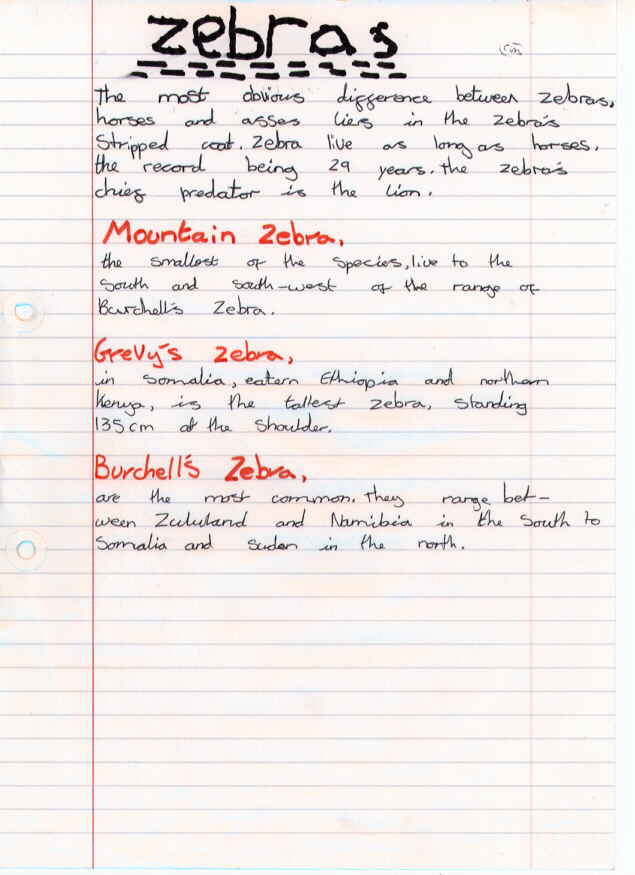 zebras
The most obvious difference between zebras,
horses and asses liers in the zebra's
Stripped coat. Zebra live as long as horses.
the record being 29 years. the zebra's
chief predator is the lion.
Mountain Zebra,
the smallest of the species, live to the
South and south-west of the range of
Burchell's Zebra.
Grevy's zebra,
in somalia, eatern Ethiopia and northern
Kenya, is the tallest zebra, standing
135cm at the shoulder.
Burchell's Zebra,
are the most common. They range bet-
ween Zululand and Namibia in the South to
Somalia and sudan in the north.